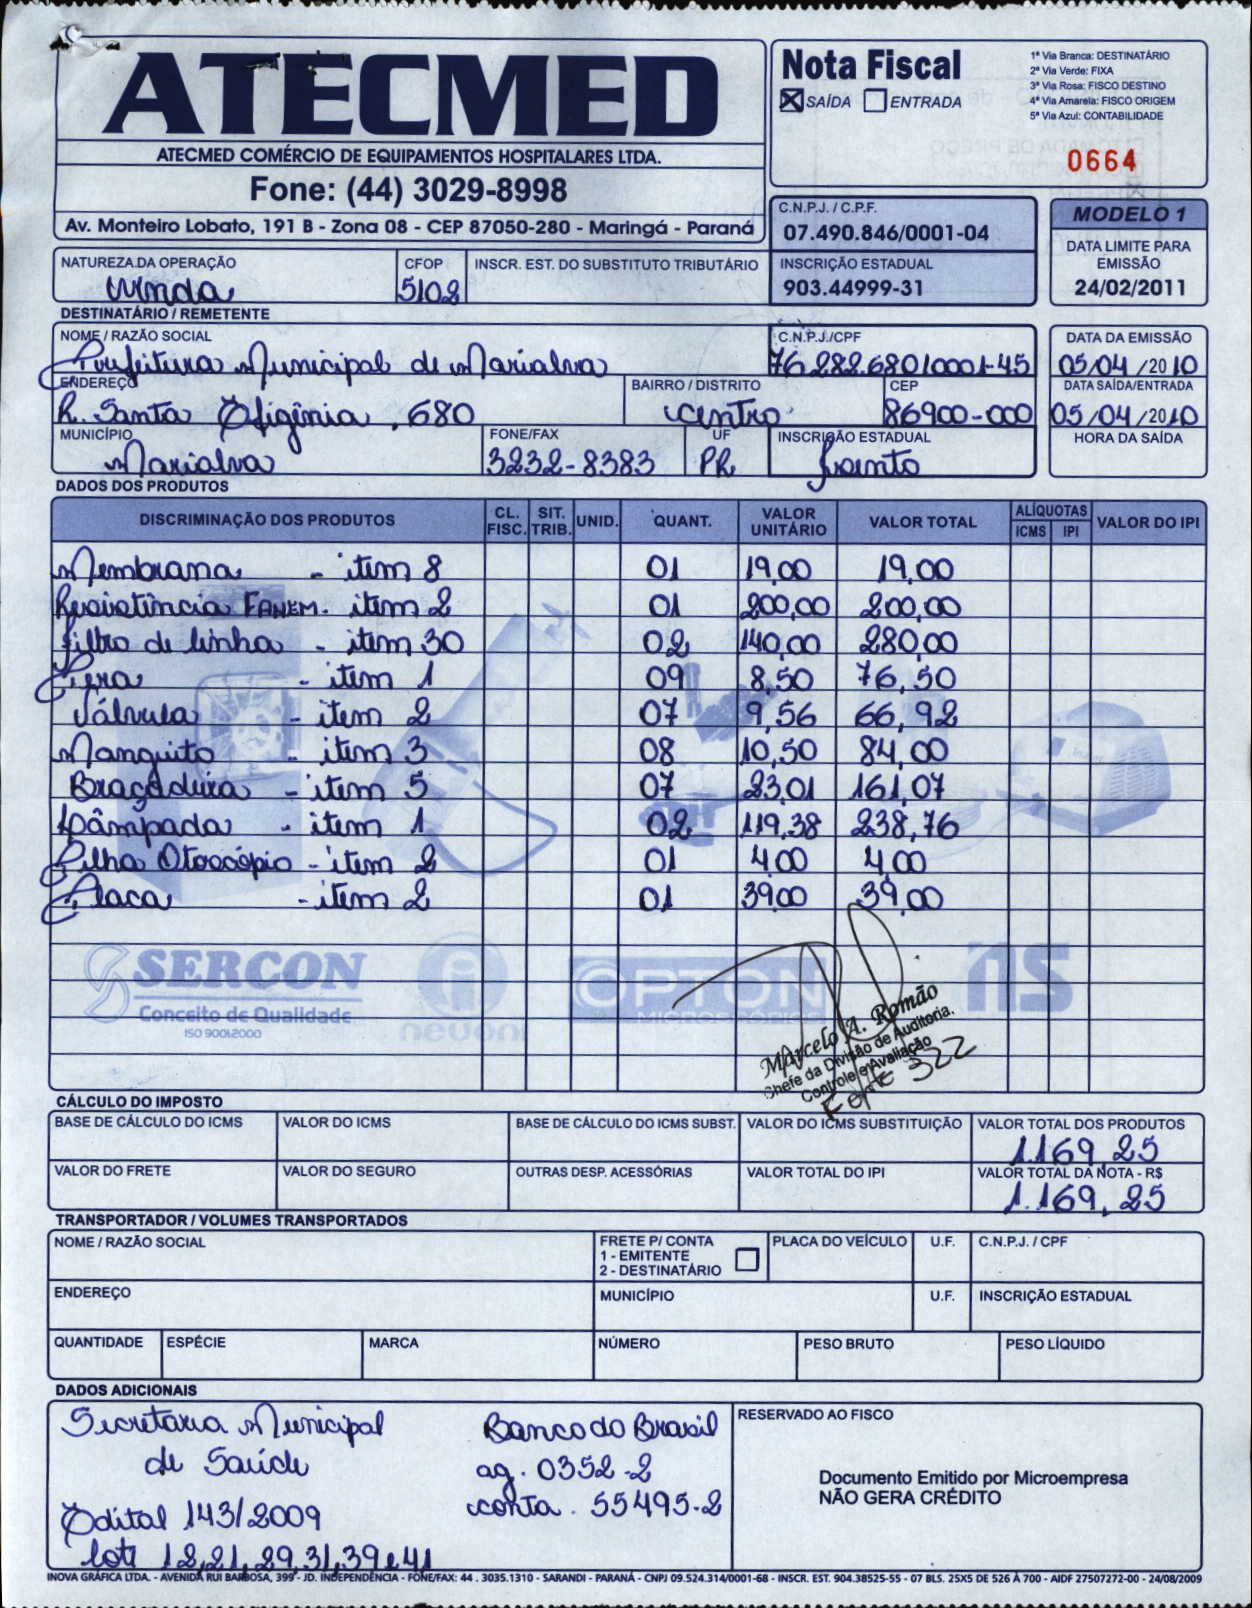 ATECMED
ATECMED COMÉRCIO DE EQUIPAMENTOS HOSPITALARES LTDA.
Fone: (44) 3029-8998
Av. Monteiro Lobato, 191 B - Zona 08 - CEP 87050-280 - Maringá - Paraná
Nota Fiscal
SAÍDA ENTRADA
1ª Via Branca: DESTINATÁRIO
2ª Via Verde: FIXA
3ª Via Rosa: FISCO DESTINO
4ª Via Amarela: FISCO ORIGEM
5ª Via Azul: CONTABILIDADE
0664
C.N.P.J. / C.P.F.
07.490.846/0001-04
INSCRIÇÃO ESTADUAL
903.44999-31
MODELO 1
DATA LIMITE PARA
EMISSÃO
24/02/2011
NATUREZA DA OPERAÇÃO CFOP INSCR. EST. DO SUBSTITUTO TRIBUTÁRIO
venda 5102
DESTINATÁRIO / REMETENTE
NOME / RAZÃO SOCIAL C.N.P.J./CPF DATA DA EMISSÃO
Prefeitura Municipal de Marialva 76.282.680/0001-45 05/04/2010
ENDEREÇO BAIRRO / DISTRITO CEP DATA SAÍDA/ENTRADA
R. Santa Efigênia, 680 centro 86900-000 05/04/2010
MUNICÍPIO FONE/FAX UF INSCRIÇÃO ESTADUAL HORA DA SAÍDA
Marialva 3232-8383 PR Isento
DADOS DOS PRODUTOS
DISCRIMINAÇÃO DOS PRODUTOS CL. FISC. SIT. TRIB. UNID. QUANT. VALOR UNITÁRIO VALOR TOTAL ALÍQUOTAS ICMS IPI VALOR DO IPI
Membrana - item 8 01 19,00 19,00
Resistência FANEM - item 2 01 200,00 200,00
Filtro de linha - item 30 02 140,00 280,00
Pera - item 1 09 8,50 76,50
Válvula - item 2 07 9,56 66,92
Manguito - item 3 08 10,50 84,00
Braçadeira - item 5 07 23,01 161,07
Lâmpada - item 1 02 119,38 238,76
Pilha Otoscópio - item 2 01 4,00 4,00
Placa - item 2 01 39,00 39,00
SERCON
Conceito de Qualidade
ISO 9001:2000
nevoni
OPTON
MICROSCÓPIOS
NS
Marcelo A. Romão
Chefe da Divisão de Auditoria.
Controle e Avaliação
322
CÁLCULO DO IMPOSTO
BASE DE CÁLCULO DO ICMS VALOR DO ICMS BASE DE CÁLCULO DO ICMS SUBST. VALOR DO ICMS SUBSTITUIÇÃO VALOR TOTAL DOS PRODUTOS
1.169,25
VALOR DO FRETE VALOR DO SEGURO OUTRAS DESP. ACESSÓRIAS VALOR TOTAL DO IPI VALOR TOTAL DA NOTA - R$
1.169,25
TRANSPORTADOR / VOLUMES TRANSPORTADOS
NOME / RAZÃO SOCIAL FRETE P/ CONTA PLACA DO VEÍCULO U.F. C.N.P.J. / CPF
1 - EMITENTE
2 - DESTINATÁRIO
ENDEREÇO MUNICÍPIO U.F. INSCRIÇÃO ESTADUAL
QUANTIDADE ESPÉCIE MARCA NÚMERO PESO BRUTO PESO LÍQUIDO
DADOS ADICIONAIS
Secretaria Municipal
de Saúde
Edital 143/2009
lote 18,21,29,31,39 e 41
Banco do Brasil
ag. 0352-2
conta. 55495-2
RESERVADO AO FISCO
Documento Emitido por Microempresa
NÃO GERA CRÉDITO
INOVA GRÁFICA LTDA. - AVENIDA RUI BARBOSA, 399 - JD. INDEPENDÊNCIA - FONE/FAX: 44 . 3035.1310 - SARANDI - PARANÁ - CNPJ 09.524.314/0001-68 - INSCR. EST. 904.38525-55 - 07 BLS. 25X5 DE 526 À 700 - AIDF 27507272-00 - 24/08/2009